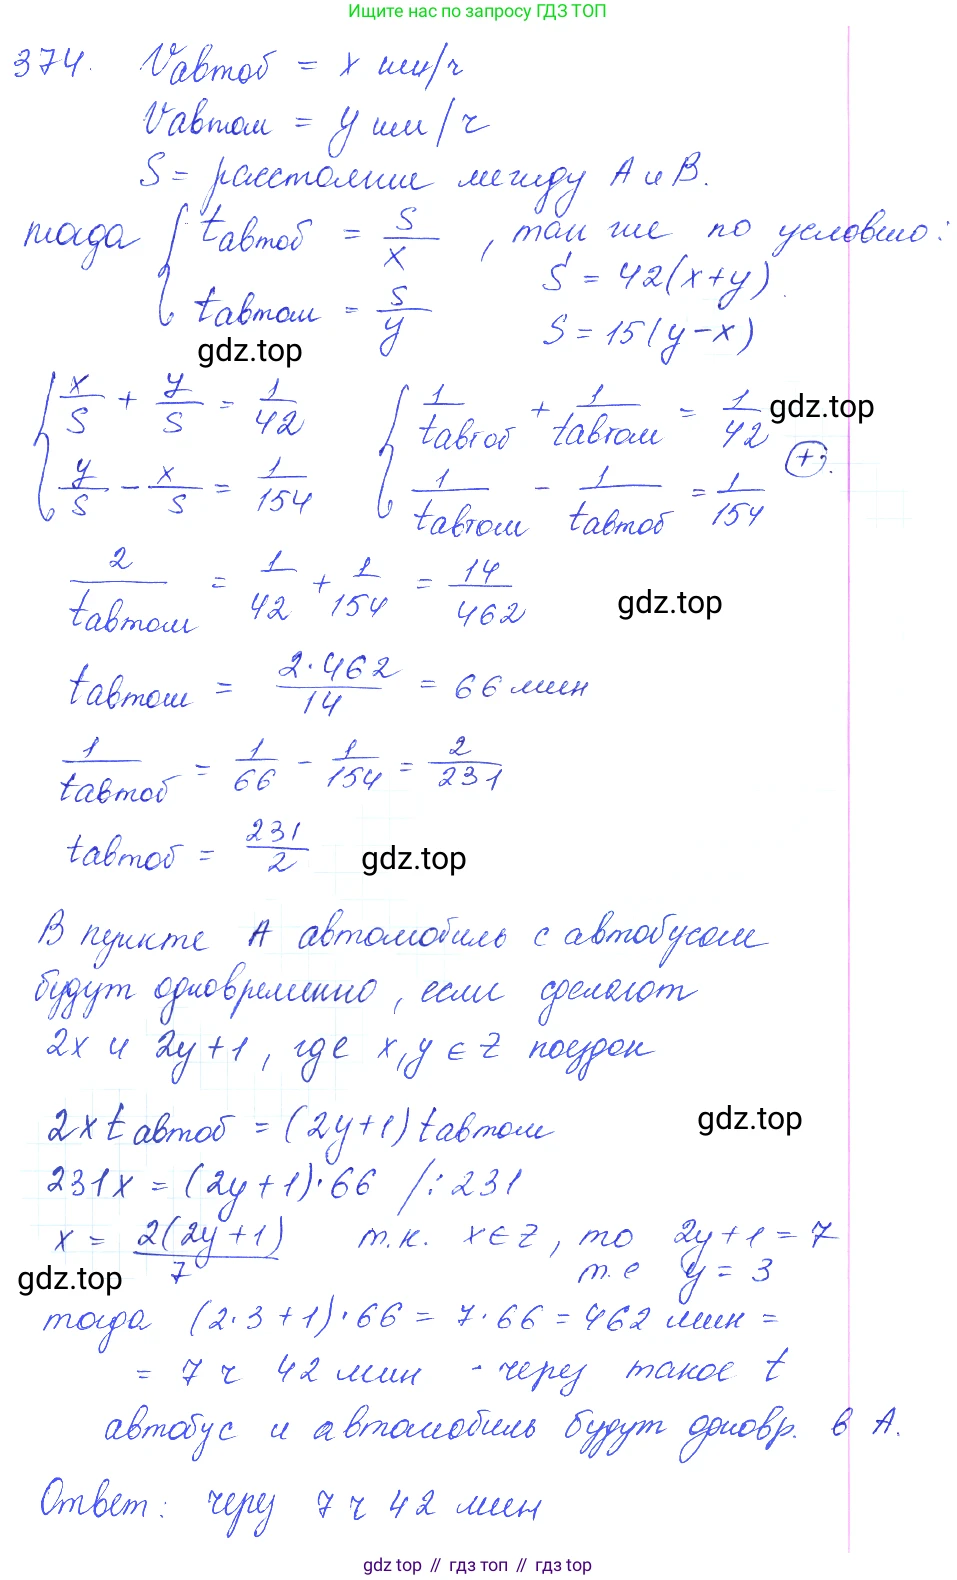 Ищите нас по запросу ГДЗ ТОП
374. Vавтоб = x км/ч
Vавтом = y км/ч
S = расстояние между А и В.
тогда { tавтоб = S/x , так же по условию:
tавтом = S/y
S = 42(x+y)
S = 15(y-x)
gdz.top
{ x/S + y/S = 1/42
y/S - x/S = 1/154
{ 1/tавтоб + 1/tавтом = 1/42
1/tавтом - 1/tавтоб = 1/154
(+).
gdz.top
2/tавтом = 1/42 + 1/154 = 14/462
gdz.top
tавтом = 2·462/14 = 66 мин
1/tавтоб = 1/66 - 1/154 = 2/231
tавтоб = 231/2
gdz.top
В пункте А автомобиль с автобусом
будут одновременно, если сделают
2x и 2y+1, где x,y ∈ Z поездок
2x tавтоб = (2y+1) tавтом
gdz.top
231x = (2y+1)·66 /:231
x = 2(2y+1)/7 т.к. x∈Z, то 2y+1 = 7
т.е y = 3
gdz.top
тогда (2·3+1)·66 = 7·66 = 462 мин =
= 7 ч 42 мин - через такое t
автобус и автомобиль будут одновр. в А.
Ответ: через 7 ч 42 мин
gdz top // гдз топ // gdz top